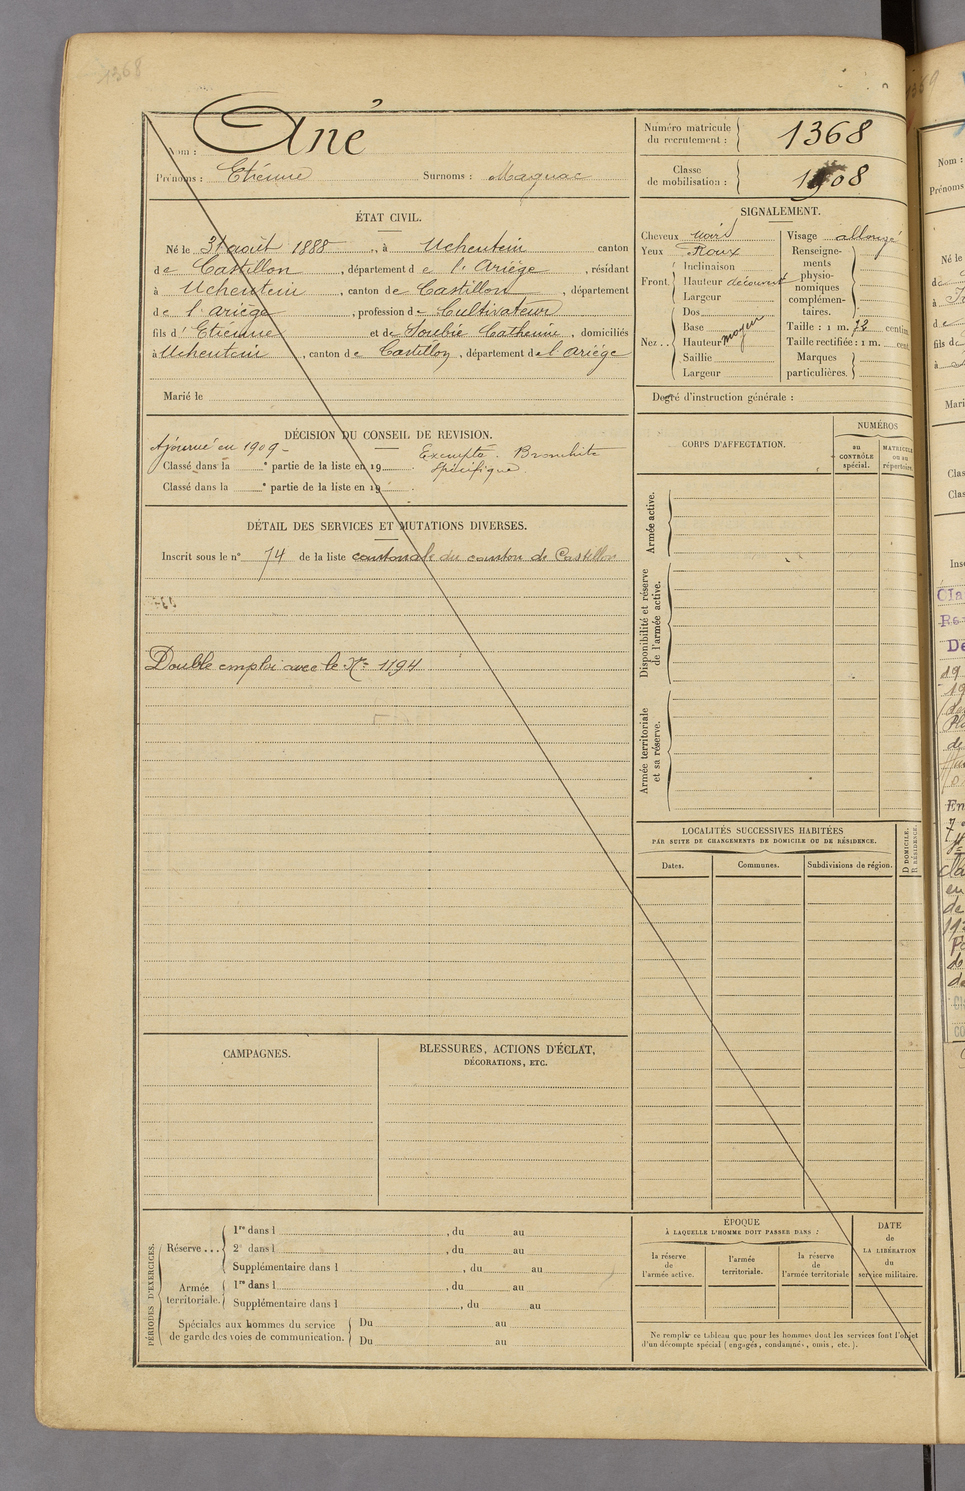 1368
Nom : Ané
Prénoms : Etienne Surnoms : Magnac
Numéro matricule du recrutement : 1368
Classe de mobilisation : 1908
ÉTAT CIVIL.
Né le 31 août 1888, à Uchentein canton
de Castillon, département de l'Ariége, résidant
à Uchentein, canton de Castillon, département
de l'ariége, profession de Cultivateur
fils d'Etienne et de Soubie Catherine, domiciliés
à Uchentein, canton de Castillon, département de l'ariége
Marié le
DÉCISION DU CONSEIL DE REVISION.
Ajourné en 1909 - Exempté. Bronchite
Classé dans la e partie de la liste en 19 . Spécifique.
Classé dans la e partie de la liste en 19 .
DÉTAIL DES SERVICES ET MUTATIONS DIVERSES.
Inscrit sous le n° 74 de la liste cantonale du canton de Castillon
Double emploi avec le N° 1194
CAMPAGNES.
BLESSURES, ACTIONS D'ÉCLAT,
DÉCORATIONS, ETC.
PÉRIODES D'EXERCICES.
Réserve ...
1re dans l , du au
2e dans l , du au
Supplémentaire dans l , du au
Armée territoriale.
1re dans l , du au
Supplémentaire dans l , du au
Spéciales aux hommes du service
de garde des voies de communication.
Du au
Du au
SIGNALEMENT.
Cheveux noirs
Yeux Roux
Front
Inclinaison
Hauteur découvert
Largeur
Nez ..
Dos
Base moyen
Hauteur
Saillie
Largeur
Visage allongé
Renseigne-
ments
physio-
nomiques
complémen-
taires.
Taille : 1 m. 72 centim.
Taille rectifiée : 1 m. cent.
Marques
particulières.
Degré d'instruction générale :
CORPS D'AFFECTATION.
NUMÉROS
au
CONTRÔLE
spécial.
MATRICULE
ou au
répertoire.
Armée active.
Disponibilité et réserve
de l'armée active.
Armée territoriale
et sa réserve.
LOCALITÉS SUCCESSIVES HABITÉES
PAR SUITE DE CHANGEMENTS DE DOMICILE OU DE RÉSIDENCE.
Dates.
Communes.
Subdivisions de région.
D DOMICILE.
R RÉSIDENCE.
ÉPOQUE
À LAQUELLE L'HOMME DOIT PASSER DANS :
la réserve
de
l'armée active.
l'armée
territoriale.
la réserve
de
l'armée territoriale
DATE
de
LA LIBÉRATION
du
service militaire.
Ne remplir ce tableau que pour les hommes dont les services font l'objet
d'un décompte spécial (engagés, condamnés, omis, etc.).
Nom :
Prénoms
Né le